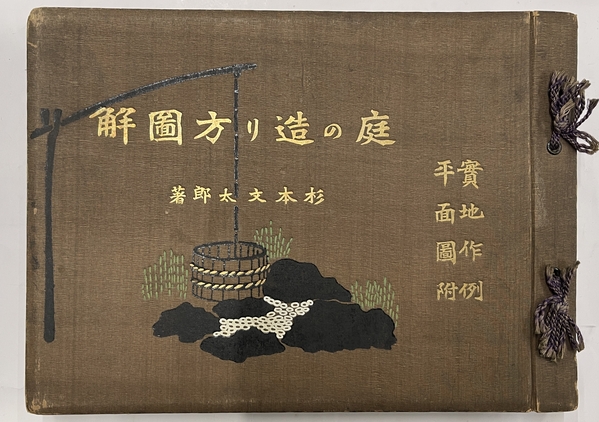 庭の造り方圖解
杉本文太郎著
實地作例
平面圖附